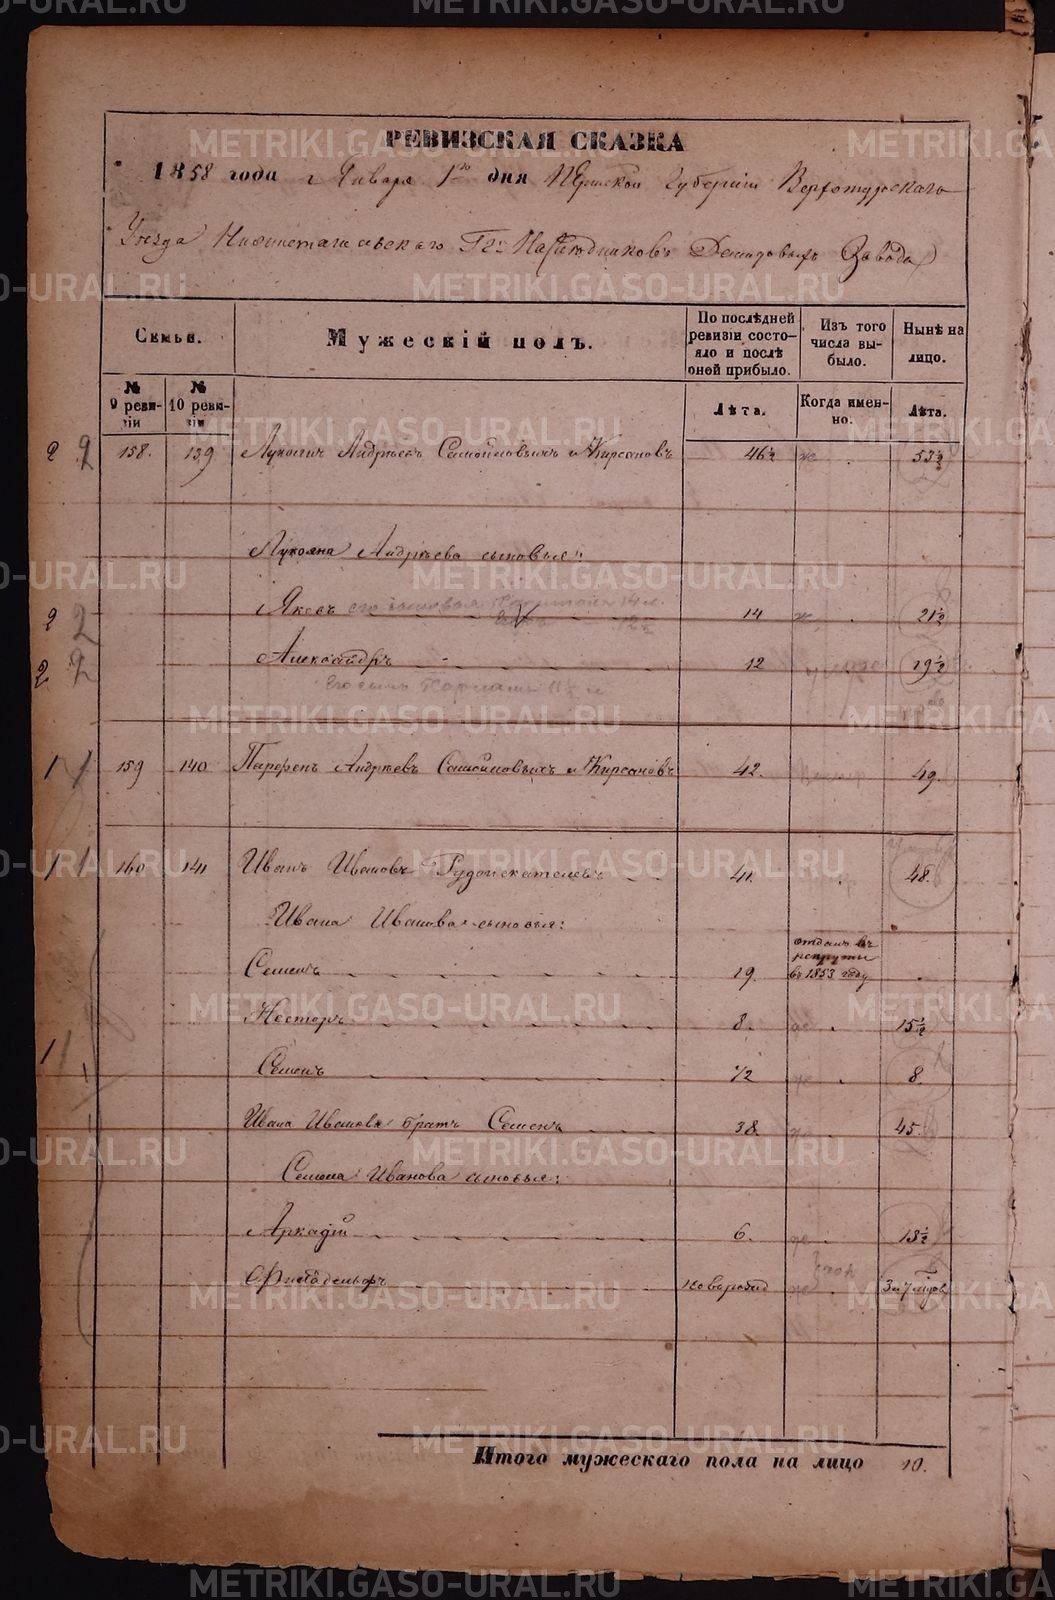 РЕВИЗСКАЯ СКАЗКА
1858 года Января 1го дня Пермской Губернiи Верхотурскаго
Уѣзда Нижнетагильскаго Гг. Наслѣдниковъ Демидовыхъ Завода
Семьи.
Мужескiй полъ.
По послѣдней ревизiи состояло и послѣ оной прибыло.
Изъ того числа выбыло.
Нынѣ на лицо.
№ 9 ревизiи
№ 10 ревизiи
Лѣта.
Когда именно.
Лѣта.
2 2 158. 139 Лукоянъ Андрѣевъ Самойловыхъ и Кирсановъ 46½ 53½
Лукояна Андрѣева сыновья:
2 2 Яковъ его сыновья 14 л. 14 21½
2 2 Александръ 12 19½
Его сынъ 11½
1 1 159 140 Парфенъ Андрѣевъ Самойловыхъ и Кирсановъ 42. 49.
1 1 160 141 Иванъ Ивановъ Рудоискателевъ 41. 48.
Ивана Иванова сыновья:
Семенъ 19. отданъ въ рекруты въ 1853 году
Несторъ 8. 15½
1 Семенъ ½ 8.
Ивана Иванова братъ Семенъ 38. 45.
Семена Иванова сыновья:
Аркадiй 6. 13½
Филадельфъ новорожд 3 и 7 мцов
Итого мужескаго пола на лицо 10.
METRIKI.GASO-URAL.RU